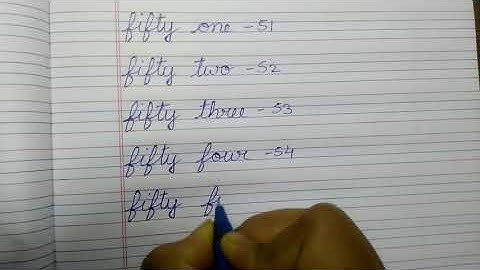 fifty one - 51
fifty two - 52
fifty three - 53
fifty four - 54
fifty f